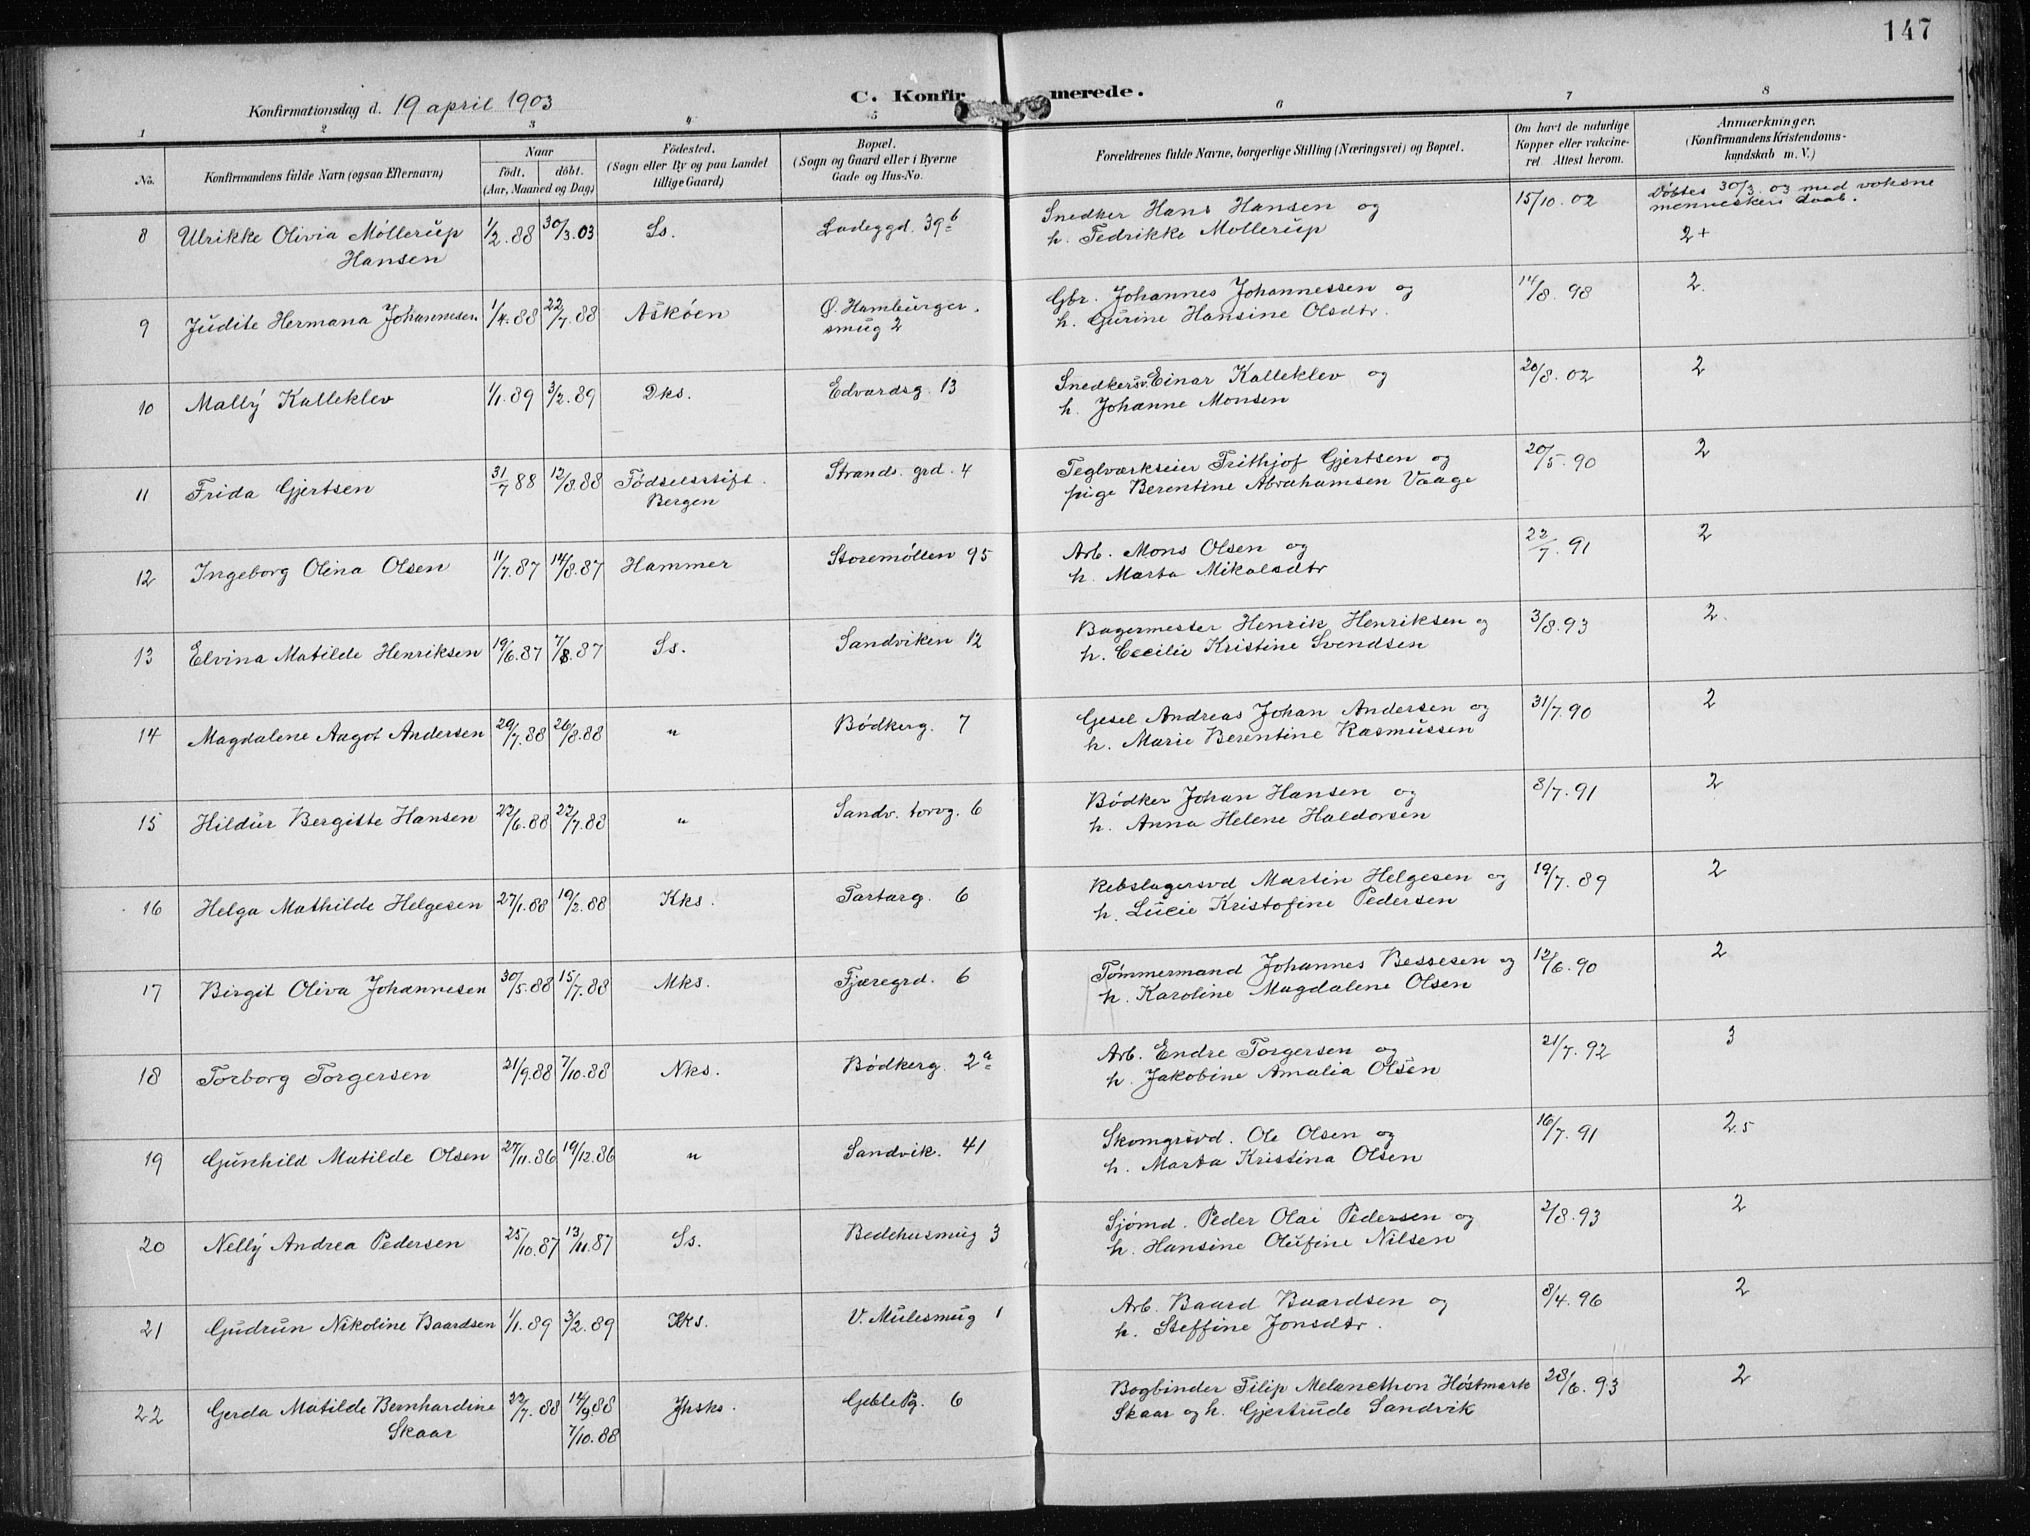 147
Konfirmationsdag d. 19 april 1903
C. Konfirmerede.
1 2 3 4 5 6 7 8
No. Konfirmandens fulde Navn (ogsaa Efternavn) Naar født. døbt. (Aar, Maaned og Dag) Fødested. (Sogn eller By og paa Landet tillige Gaard) Bopæl. (Sogn og Gaard eller i Byerne Gade og Hus-No. Forældrenes fulde Navne, borgerlige Stilling (Næringsvei) og Bopæl. Om havt de naturlige Kopper eller vakcineret. Attest herom. Anmærkninger. (Konfirmandens Kristendomskundskab m. V.)
8 Ulrikke Olivia Møllerup Hansen 1/2.88 30/3.03 Ss. Ladeggd. 39b Snedker Hans Hansen og 15/10.02 Døbtes 30/3.03 med voksne
h. Fedrikke Møllerup menneskers daab.
2+
9 Judite Hermana Johannesen 1/4.88 22/7.88 Askøen Ø. Hamburger- Gbr. Johannes Johannessen og 14/8.98 2.
smug 2 h. Gurine Hansine Olsdtr.
10 Mally Kalleklev 1/1.89 3/2.89 Dks. Edvardsg. 13 Snedkersv. Einar Kalleklev og 20/8.02 2
h. Johanne Monsen
11 Frida Gjertsen 31/7 88 12/8.88 Fødselsstift. Strands. grd. 4 Teglværkseier Frithjof Gjertsen og 20/5.90 2
Bergen pige Berentine Abrahamsen Vaage
12 Ingeborg Olina Olsen 11/7.87 14/8.87 Hammer Storemøllen 95 Arb. Mons Olsen og 22/7.91 2
h. Marta Mikalsdtr
13 Elvina Matilde Henriksen 19/6.87 7/8.87 Ss. Sandviken 12 Bagermester Henrik Henriksen og 3/8.93 2.
h. Cecilie Kristine Svendsen
14 Magdalene Aagot Andersen 29/7.88 26/8.88 " Bødkerg. 7 Gesel Andreas Johan Andersen og 31/7.90 2
h. Marie Berentine Rasmussen
15 Hildur Bergitte Hansen 22/6.88 22/7.88 " Sandv. torvg. 6 Bødker Johan Hansen og 8/7.91 2
h. Anna Helene Haldorsen
16 Helga Mathilde Helgesen 27/1.88 19/2.88 Kks. Tartarg. 6 Rebslagersvd Martin Helgesen og 19/7.89 2
h. Lucie Kristofine Pedersen
17 Birgit Oliva Johannesen 30/5.88 15/7.88 Mks. Fjæregrd. 6 Tømmermand Johannes Bessesen og 12/6.90 2
h. Karoline Magdalene Olsen
18 Torborg Torgersen 21/9.88 7/10.88 Nks. Bødkerg. 2a Arb. Endre Torgersen og 21/7.92 3
h. Jakobine Amalia Olsen
19 Gunhild Matilde Olsen 27/11.86 19/12.86 " Sandvik. 41 Skomgrsvd. Ole Olsen og 16/7.91 2.5
h. Marta Kristina Olsen
20 Nelly Andrea Pedersen 25/10.87 13/11.87 Ss. Bedehusmug 3 Sjømd. Peder Olai Pedersen og 2/8.93 2
h. Hansine Olufine Nilsen
21 Gudrun Nikoline Baardsen 1/1.89 3/2.89 Kks. V. Mulesmug 1 Arb. Baard Baardsen og 8/4.96 2
h. Steffine Jonsdtr.
22 Gerda Matilde Bernhardine Skaar 22/7.88 14/9.88 7/10.88 Jhsks. Geble Pg. 6 Bogbinder Filip Melancthon Høstmark 28/6.93 2
Skaar og h. Gjertrude Sandvik